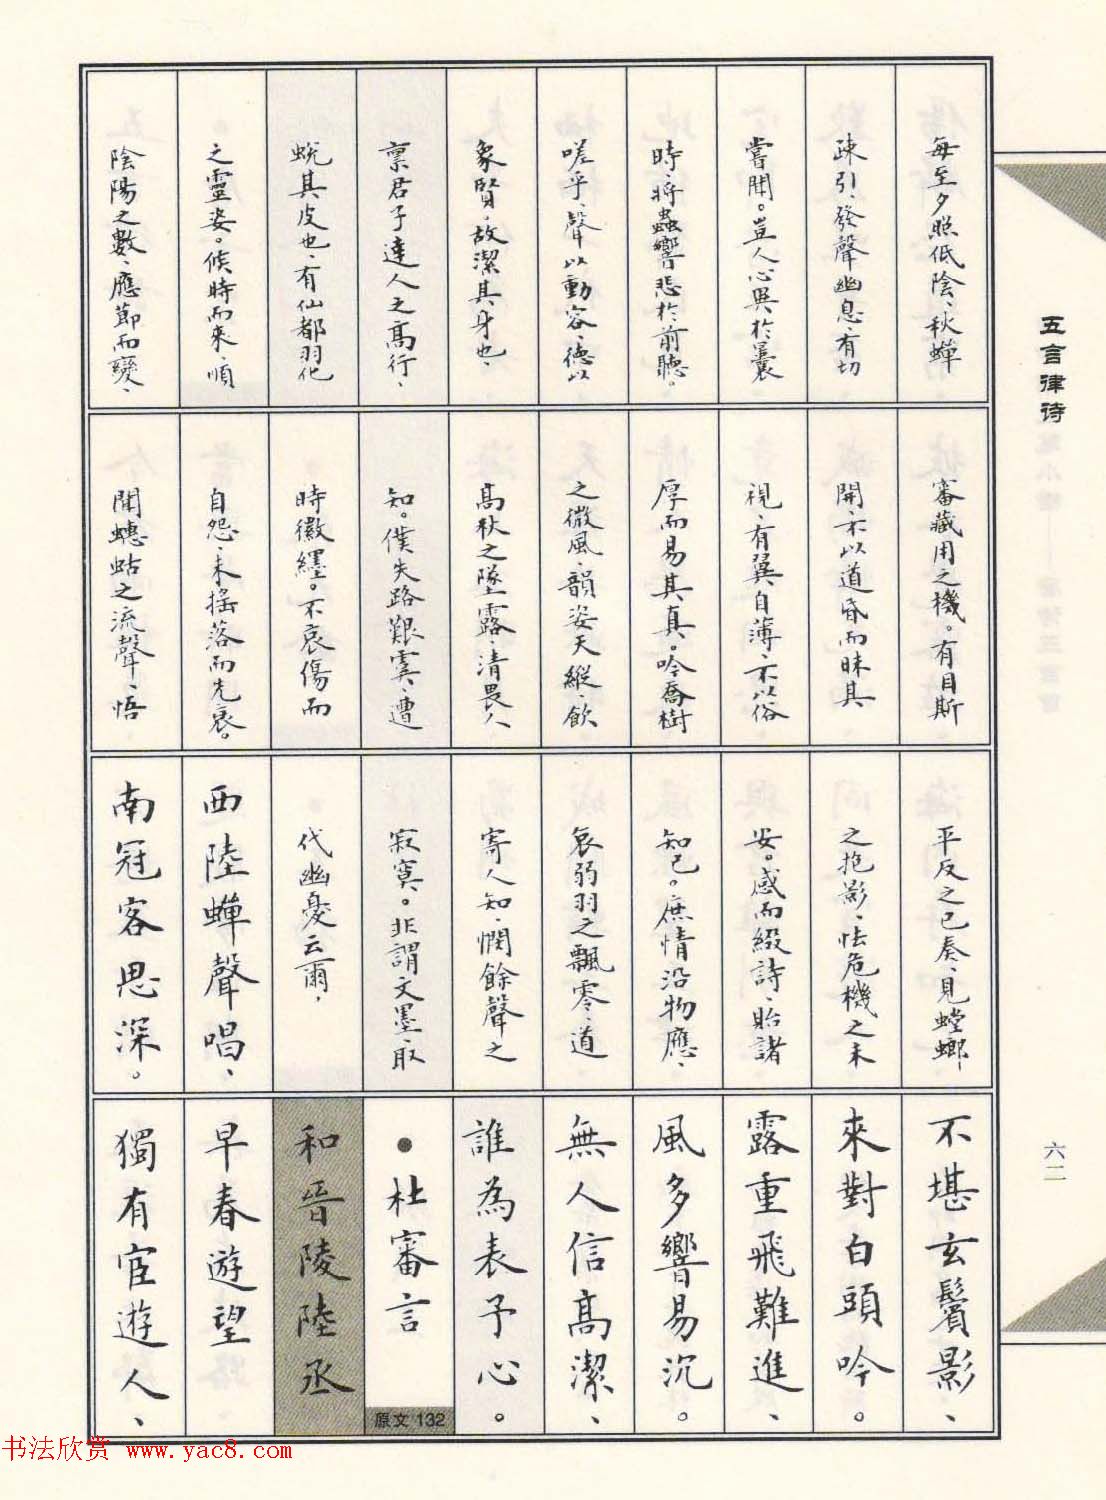 每至夕照低陰、秋蟬
疎引、發聲幽息、有切
嘗聞。豈人心異於曩
時、將蟲響悲於前聽。
嗟乎、聲以動容、德以
象賢。故潔其身也、
禀君子達人之高行、
蛻其皮也、有仙都羽化
之靈姿。候時而來、順
陰陽之數、應節而變、
審藏用之機。有目斯
開、不以道昏而昧其
視、有翼自薄、不以俗
厚而易其真。吟喬樹
之微風、韻姿天縱、飲
高秋之墜露、清畏人
知。僕失路艱虞、遭
時徽纆。不哀傷而
自怨、未搖落而先衰。
聞蟪蛄之流聲、悟
平反之已奏、見螳螂
之抱影、怯危機之未
安。感而綴詩、貽諸
知己。庶情沿物應、
哀弱羽之飄零、道
寄人知、憫餘聲之
寂寞。非謂文墨、取
代幽憂云爾,
西陸蟬聲唱、
南冠客思深。
不堪玄鬢影、
來對白頭吟。
露重飛難進、
風多響易沉。
無人信高潔、
誰為表予心。
●杜審言
原文 132
和晉陵陸丞
早春遊望
獨有宦遊人、
五言律诗
六二
书法欣赏 www.yac8.com